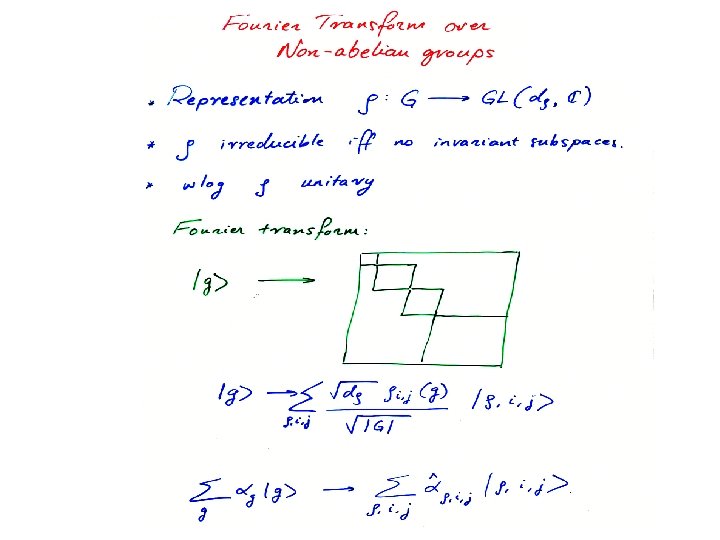 Fourier Transform over
Non-abelian groups
* Representation ρ: G ⟶ GL(d_ρ, ℂ)
* ρ irreducible iff no invariant subspaces.
* wlog ρ unitary
Fourier transform:
|g> ⟶
|g> → Σ_{ρ,i,j} √d_ρ ρ_{i,j}(g) / √|G| |ρ, i, j>
Σ_g α_g |g> → Σ_{ρ,i,j} α̂_{ρ,i,j} |ρ, i, j>.